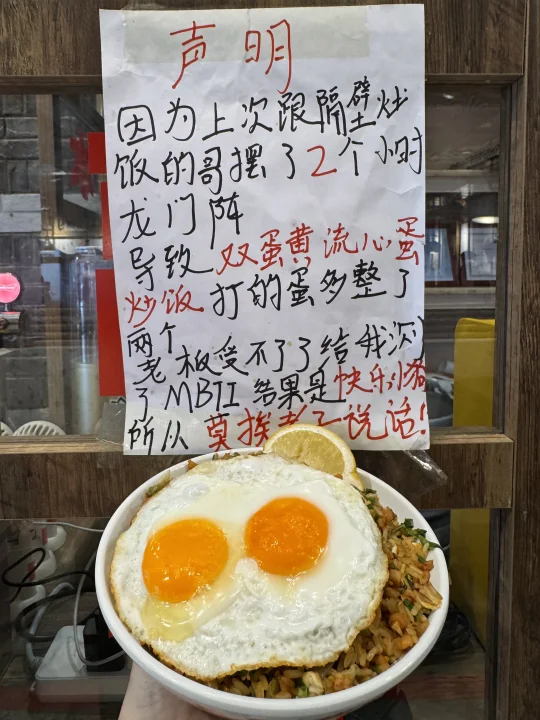 声明
因为上次跟隔壁炒
饭的哥摆了2个小时
龙门阵
导致双蛋黄流心蛋
炒饭打的蛋多整了
两个
老板受不了了给我测
了MBTI结果是快乐小猪
所以莫挨老子说话!